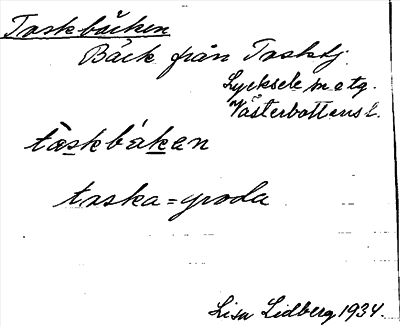 Taskbäcken
Bäck från Tasktj.
Lycksele m o tg.
Västerbottens l.
tàskbáken
taska = groda
Lisa Lidberg 1934.